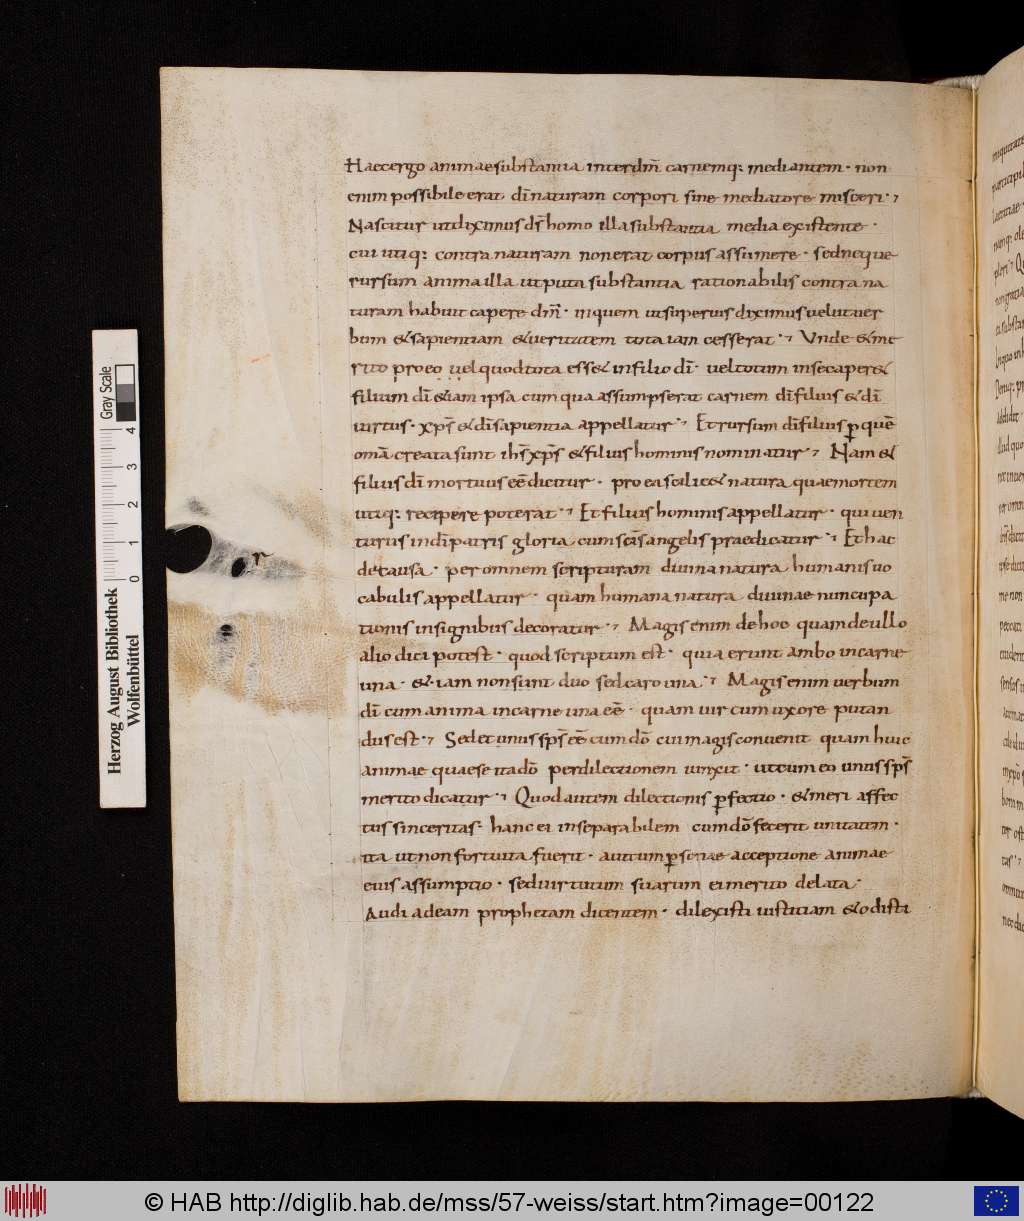 Haecergo animaesubstantia interdm̄ carnemq: mediantem · non
enim possibile erat dīnaturam corpori sine mediatore misceri ·
Nascitur utdiximus ds̄ homo illa substantia media existente ·
cui utiq: contra naturam nonerat corpus assumere · sedneque
rursum anima illa utputa substantia rationabilis contra na
turam habuit capere dm̄ · inquem utsuperius diximus velutver
bum &sapientiam &veritatem tota iam cesserat · Unde &me
rito pro eo vel quodtota ess& infilio dī · vel totum insecaper&
filium dī &iam ipsa cum qua assumpserat carnem dīfilius &dī
virtus · xps̄ &dīsapientia appellatur · Et rursum dīfilius p quē
omā creata sunt ihs̄xps̄ &filius hominis nominatur · Nam &
filius dī mortuus eē dicitur · pro ea scilic& natura quae mortem
utiq: recipere poterat · Et filius hominis appellatur · qui ven
turus indīpatris gloria cum scīs angelis praedicatur · Et hac
de causa · per omnem scripturam divina natura humanis vo
cabulis appellatur · quam humana natura divinae nuncupa
tionis insignibus decoratur · Magis enim de hoc quam de ullo
alio dici potest · quod scriptum est · quia erunt ambo in carne
una · &iam non sunt duo sed caro una · Magis enim verbum
dī cum anima in carne una eē · quam vir cum uxore putan
dus est · Sed et unus sps̄ eē cum dō cui magis convenit quam huic
animae quae se ita dō per dilectionem iunxit · ut cum eo unus sps̄
merito dicatur · Quod autem dilectionis pfectio · &meri affec
tus sinceritas · hanc ei inseparabilem cum dō fecerit unitatem ·
ita ut non fortuita fuerit · aut cum psonae acceptione animae
eius assumptio · sed virtutum suarum ei merito delata ·
Audi ad eam prophetam dicentem · dilexisti iustitiam &odisti
Herzog August Bibliothek
Wolfenbüttel
Gray Scale
0 1 2 3 4
© HAB http://diglib.hab.de/mss/57-weiss/start.htm?image=00122